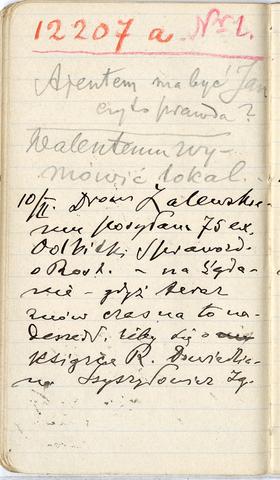 12207 a. Nr 1.
Agentem ma być Jan
czy to prawda?
Walentemu wy-
mówić lokal. -
10/II. Drowi Zalewskie-
mu posyłam 75 ex.
Odbitki Sprawozd.
o Rost. - na żąda-
nie - gdyż teraz
znów czas na to na-
deszedł, żeby się o
książce R. Dowiedzia-
no